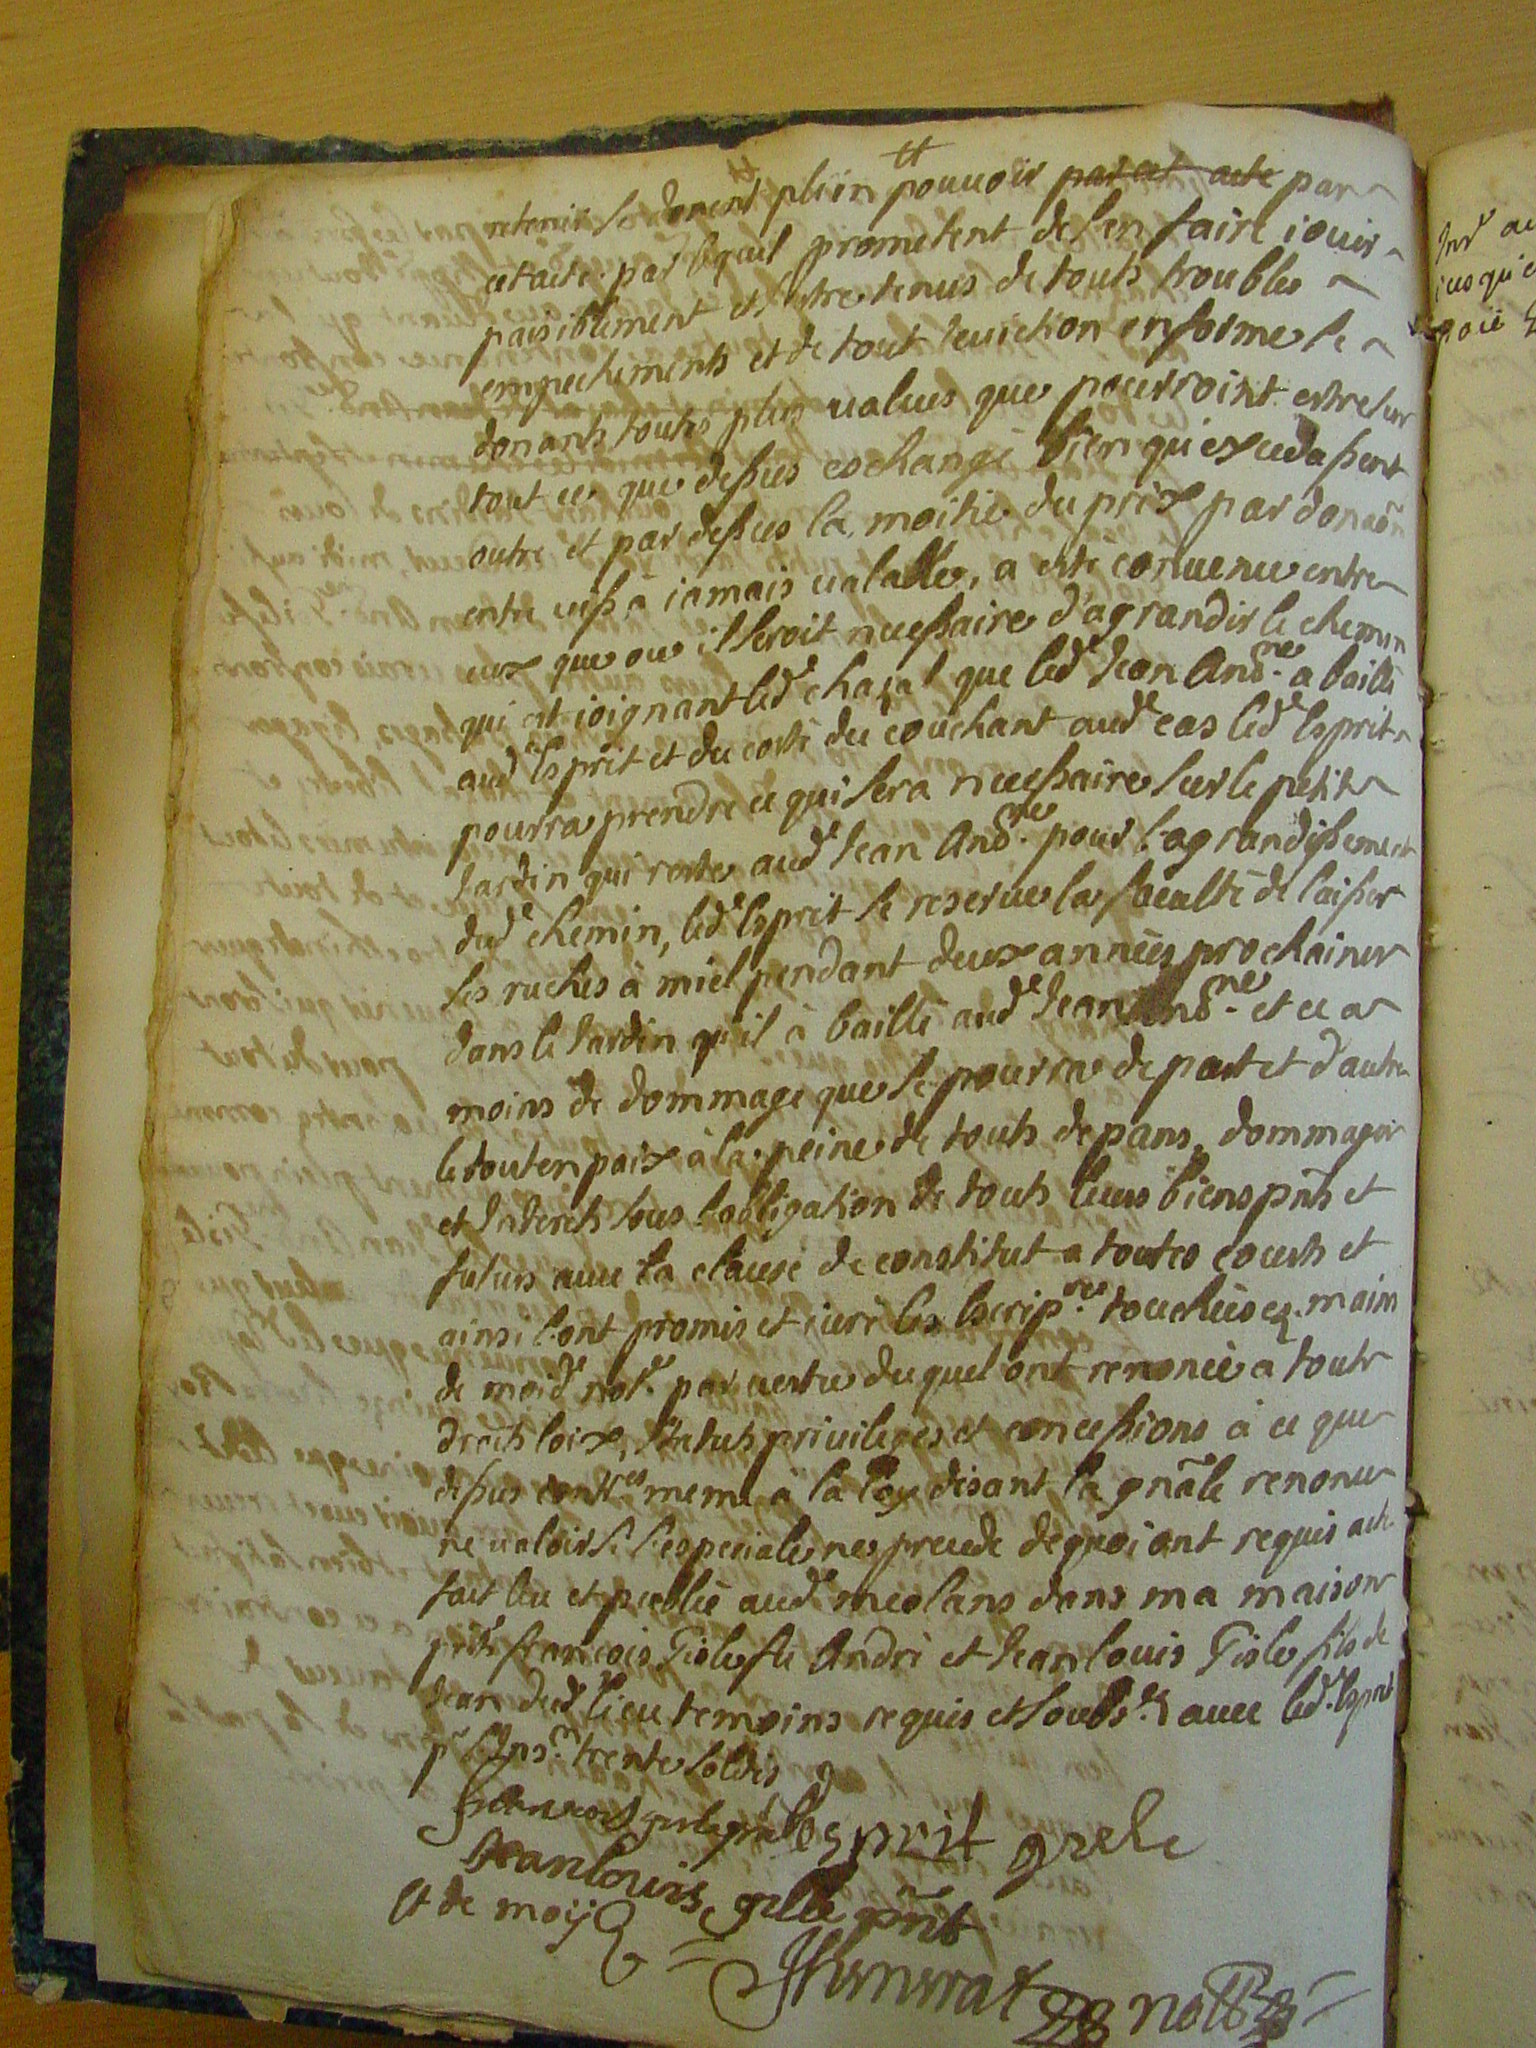 retenir se donent plain pouvoir par cet acte par
cet acte par lequel promettent de s'en faire iouir
paisiblement et estre tenus de touts troubles
empechements et de tout euiction en forme se
donants toutes plus values que pourroint estre sur
tout ce que dessus eschangé bien qu'excedassent
outre et par dessus la moitie du prix par donaõn
entre vifs à iamais ualable, a esté conuenu entre
eux que ou il seroit necessaire d'agrandir le chemin
qui est ioignant led.e chazal que led.e Jean And.re a baillé
aud.e Esprit et du costé du couchant aud.e cas led.e Esprit
pourra prendre ce qui sera necessaire sur le petit
Jardin qui reste aud.e Jean And.re pour l'agrandissement
dud.e chemin, led.e Esprit se reserue la faculté de laisser
ses ruches à miel pendant deux années prochaines
dans le Jardin qu'il à baillé aud.e Jean And.re et ce a
moins de dommage que se pourra de part et d'autre
le tout en paix à la peine de touts depans, dommages
et Interets sous l'obligation de touts leurs biens pñts et
futurs auec la clause de constitut a toutes courts et
ainsi l'ont promis et iuré les Escrip.res touchées ez mains
de moid.e not.e par uertu duquel ont renoncé a touts
droits loix, statuts priuileges et concessions à ce que
dessus contr.es meme à la loy disant la gñale renonce
ne ualoir si l'especiale ne precede de quoi ont requis acte
fait leu et publié aud.e meolans dans ma maison
pñts françois Gisle fils André et Jean louis Gisle fils de
Jean dud.e lieu temoins requis et soubs.és auec led.e Esprit
p.r l'Ins.on trente soldis
francois esprit
Jean louis pñt
Et de moy